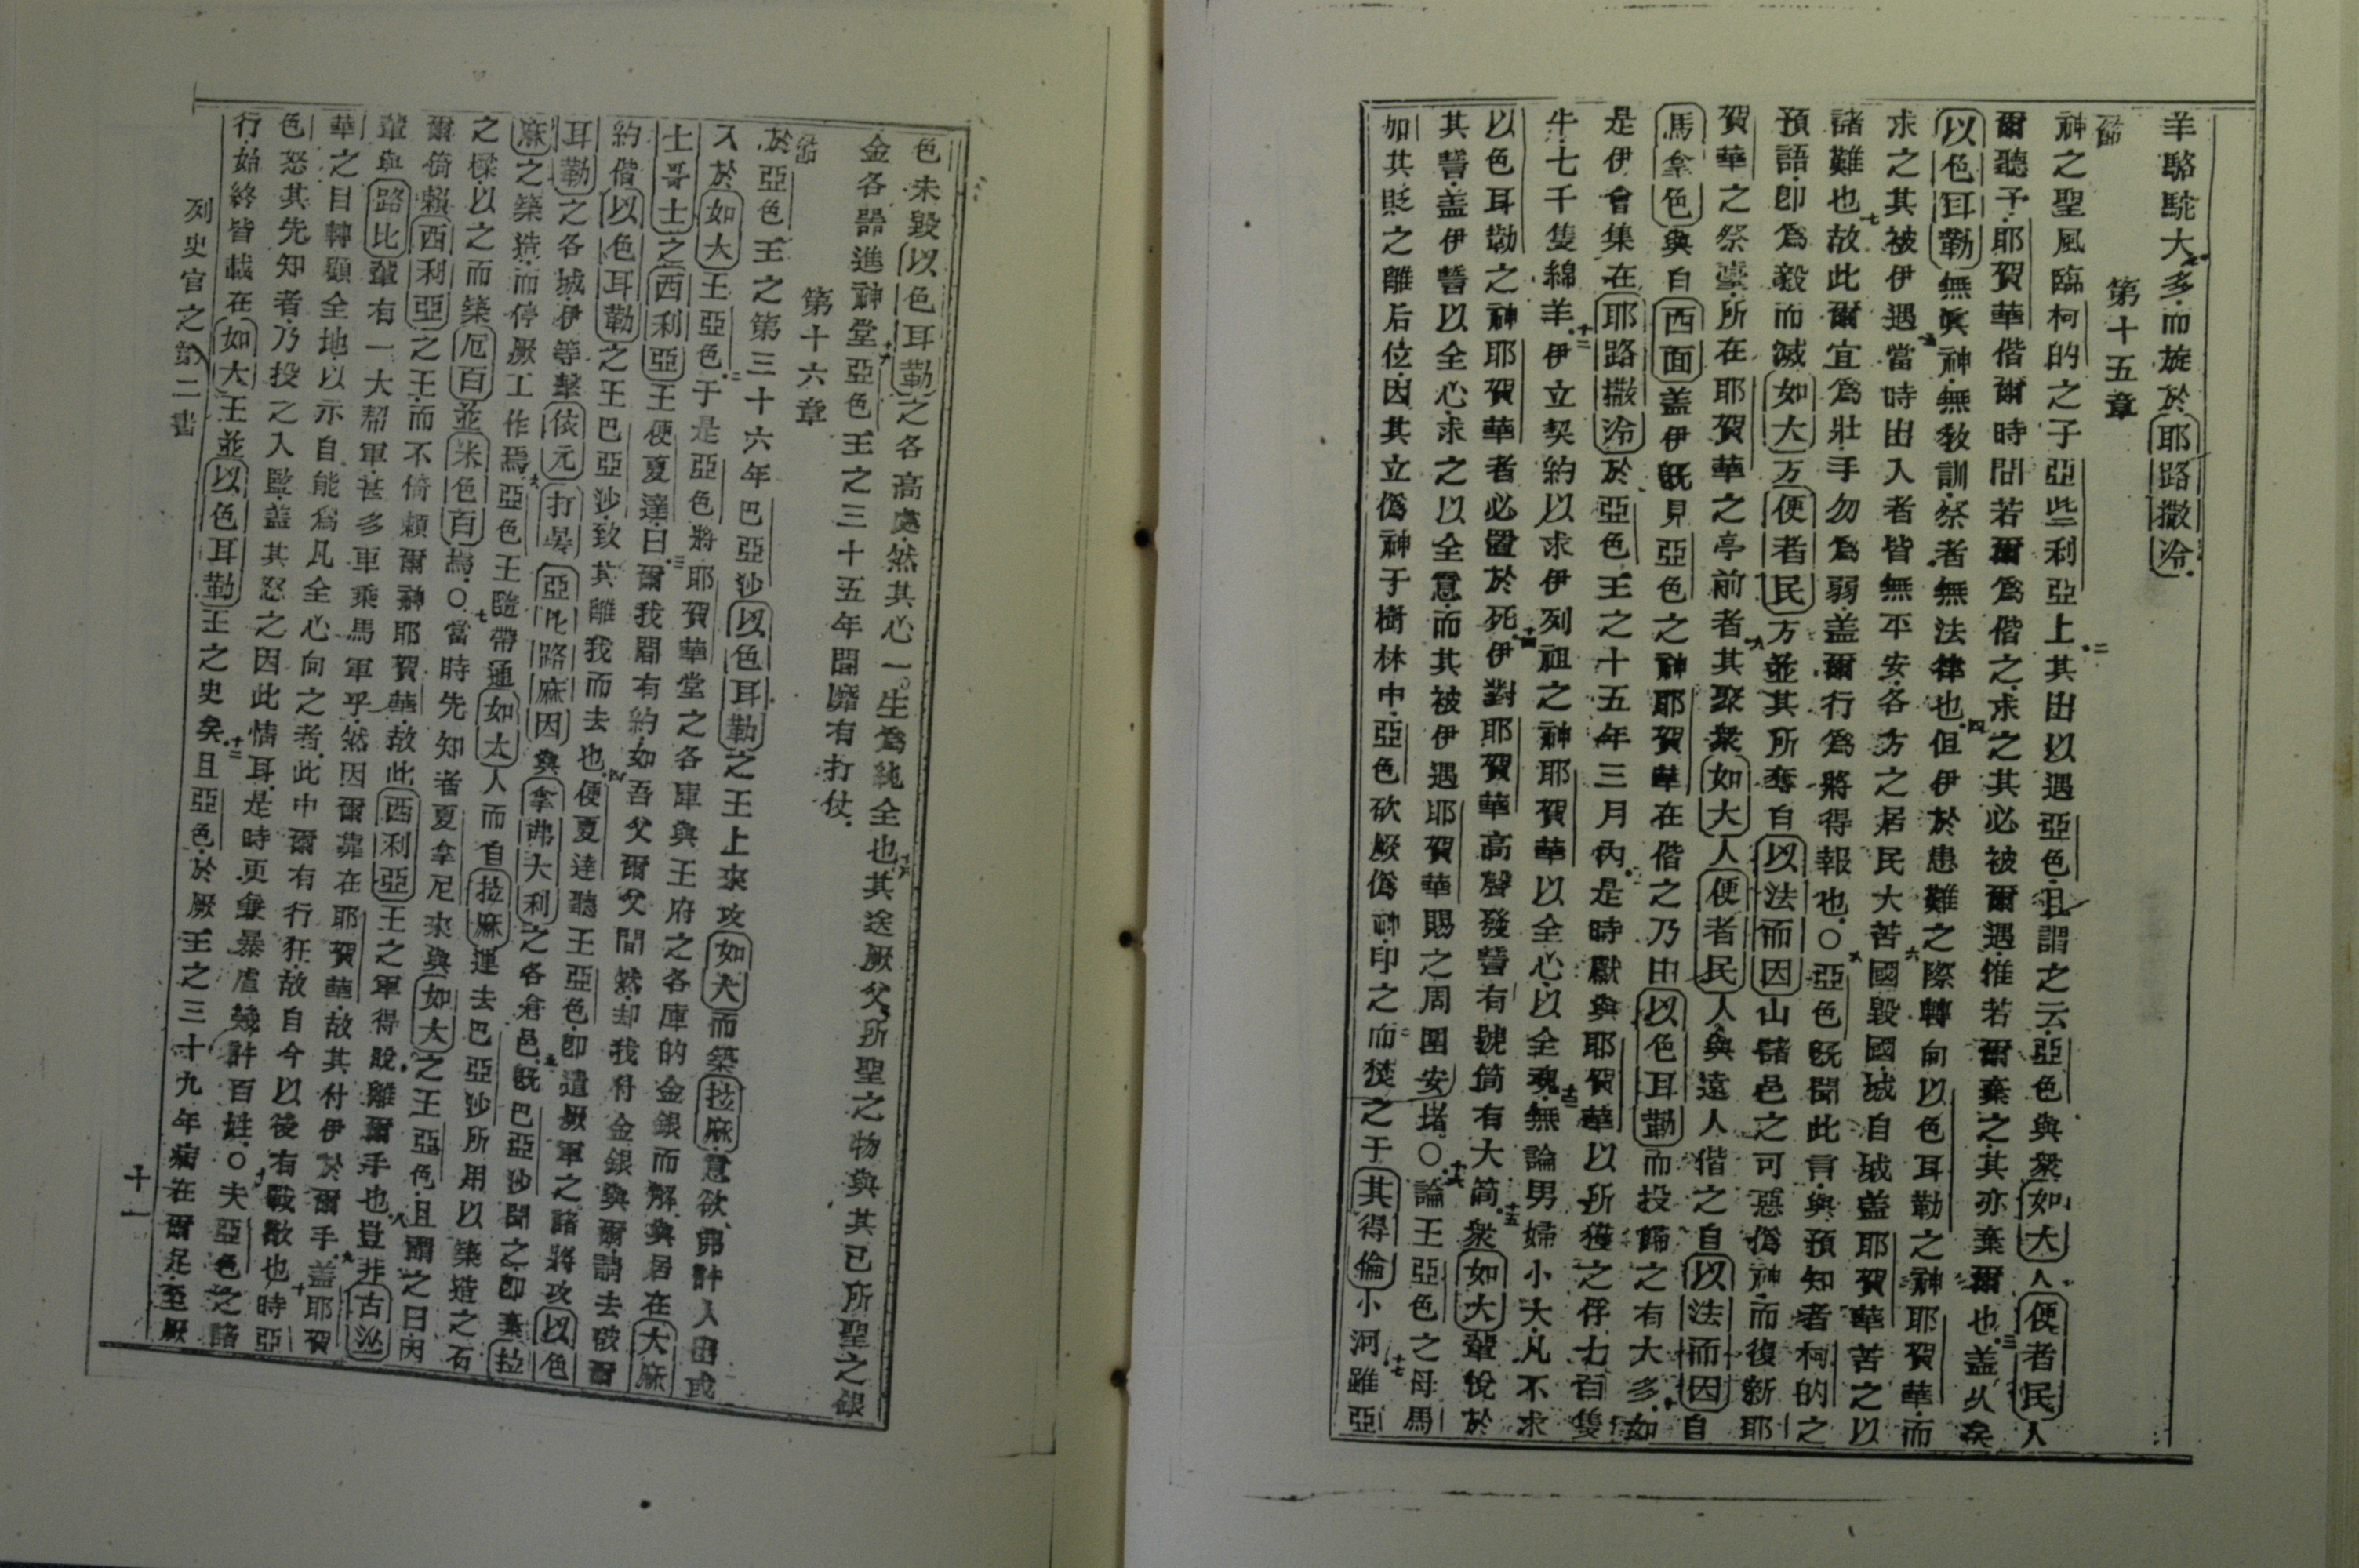 羊駱駝大多而旋於耶路撒冷
第十五章
節神之聖風臨柯的之子亞些利亞上二其出以遇亞色且謂之云亞色與衆如大人便者民人
爾聽予耶賀華偕爾時間若爾爲偕之求之其必被爾遇惟若爾棄之其亦棄爾也三盖久矣
以色耳勒無眞神無教訓祭者無法律也四但伊於患難之際轉向以色耳勒之神耶賀華而
求之其被伊遇五當時出入者皆無平安各方之居民大苦六國毀國城自城盖耶賀華苦之以
諸難也七故此爾宜爲壯手勿爲弱盖爾行爲將得報也○八亞色旣聞此言與預知者柯的之
預語卽爲毅而滅如大方便者民方並其所奪自以法而因山諸邑之可惡僞神而復新耶
賀華之祭臺所在耶賀華之亭前者九其聚衆如大人便者民人與遠人偕之自以法而因自
馬拿色與自西面盖伊旣見亞色之神耶賀華在偕之乃由以色耳勒而投歸之有大多十如
是伊會集在耶路撒冷於亞色王之十五年三月內十一是時獻與耶賀華以所獲之俘七百隻
牛七千隻綿羊十二伊立契約以求伊列祖之神耶賀華以全心以全魂十三無論男婦小大凡不求
以色耳勒之神耶賀華者必置於死十四伊對耶賀華高聲發誓有號筒有大筒十五衆如大輩悅於
其誓盖伊誓以全心求之以全意而其被伊遇耶賀華賜之周圍安堵○十六論王亞色之母馬
如其貶之離后位因其立僞神于樹林中亞色砍厥僞神印之而焚之于其得倫小河十七雖亞
色未毀以色耳勒之各高處然其心一生爲純全也十八其送厥父所聖之物與其已所聖之銀
金各器進神堂十九亞色王之三十五年間曆有打仗
第十六章
節於亞色王之第三十六年巴亞沙以色耳勒之王上來攻如大而築拉麻意欲弗許人出或
入於如大王亞色二于是亞色將耶賀華堂之各庫與王府之各庫的金銀而解與居在大麻
士哥士之西利亞王便夏達曰三爾我間有約如吾父爾父間然却我付金銀與爾請去破爾
約偕以色耳勒之王巴亞沙致其離我而去也四便夏達聽王亞色卽遣厥軍之諸將攻以色
耳勒之各城伊等擊依元打晏亞比路麻因與拿弗大利之各倉邑五旣巴亞沙聞之卽棄拉
麻之築造而停厥工作焉六亞色王隨帶通如大人而自拉麻運去巴亞沙所用以築造之石
之樑以之而築厄百並米色百焉○七當時先知者夏拿尼來與如大之王亞色且謂之曰因
爾倚賴西利亞之王而不倚賴爾神耶賀華故此西利亞王之軍得脫離爾手也八豈非古沙
輩與路比輩有一大幫軍甚多車乘馬軍乎然因爾靠在耶賀華故其付伊於爾手九盖耶賀
華之目轉顧全地以示自能爲凡全心向之者此中爾有行狂故自今以後有戰敵也十時亞
色怒其先知者乃投之入監盖其怒之因此情耳是時更兼暴虐幾許百姓○十一夫亞色之諸
行始終皆載在如大王並以色耳勒王之史矣十二且亞色於厥王之三十九年病在爾足至厥
列史官之第二書
十一